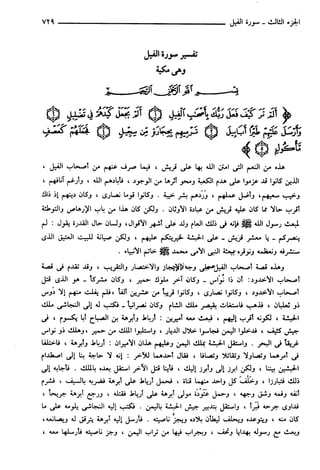 الجزء الثالث ـ سورة الفيل ٧٢٩
تفسير سورة الفيل
وهى مكية
بسم الله الرحمن الرحيم
﴿ ألم تر كيف فعل ربك بأصحاب الفيل ① ألم يجعل كيدهم في تضليل ②
وأرسل عليهم طيرا أبابيل ③ ترميهم بحجارة من سجيل ④ فجعلهم كعصف
مأكول ⑤ ﴾
هذه من النعم التى امتن الله بها على قريش ، فيما صرف عنهم من أصحاب الفيل ،
الذين كانوا قد عزموا على هدم الكعبة ومحو أثرها من الوجود ، فأبادهم الله ، وأرغم آنافهم ،
وخيب سعيهم، وأضل عملهم ، وردهم بشر خيبة . وكانوا قوما نصارى ، وكان دينهم إذ ذاك
أقرب حالا مما كان عليه قريش من عبادة الأوثان . ولكن كان هذا من باب الإرهاص والتوطئة
لمبعث رسول الله ﷺ فإنه فى ذلك العام ولد على أشهر الأقوال، ولسان حال القدرة يقول : لم
ينصركم - يا معشر قريش - على الحبشة لخيريتكم عليهم ، ولكن صيانة للبيت العتيق الذى
سنشرفه ونعظمه ونوقره ببعثة النبى الأمى محمد ﷺ خاتم الأنبياء .
وهذه قصة أصحاب الفيل على وجه الإيجاز والاختصار والتقريب ، وقد تقدم فى قصة
أصحاب الأخدود: أن ذا نُواس - وكان آخر ملوك حمير ، وكان مشركًا - هو الذى قتل
أصحاب الأخدود ، وكانوا نصارى ، وكانوا قريبا من عشرين ألفا ،فلم يفلت منهم إلا دَوس
ذو ثعلبان ، فذهب فاستغاث بقيصر ملك الشام وكان نصرانياً - فكتب له إلى النجاشى ملك
الحبشة ، لكونه أقرب إليهم ، فبعث معه أميرين : أرياط وأبرهة بن الصباح أبا يكسوم ، فى
جيش كثيف ، فدخلوا اليمن فجاسوا خلال الديار ، واستلبوا الملك من حمير ، وهلك ذو نواس
غريقاً فى البحر . واستقل الحبشة بملك اليمن وعليهم هذان الأميران : أرياط وأبرهة ، فاختلفا
فى أمرهما وتصاولا وتقاتلا وتصافا ، فقال أحدهما للآخر : إنه لا حاجة بنا إلى اصطدام
الجيشين بيننا ، ولكن ابرز إلى وأبرز إليك ، فأينا قتل الآخر استقل بعده بالملك . فأجابه إلى
ذلك فتبارزا ، وخَلَّفَ كل واحد منهما قناة ، فحمل أرياط على أبرهة فضربه بالسيف ، فشرم
أنفه وفمه وشق وجهه ، وحمل عَتَوْدَة مولى أبرهة على أرياط فقتله ، ورجع أبرهة جريحاً ،
فداوى جرحه فبرأ ، واستقل بتدبير جيش الحبشة باليمن . فكتب إليه النجاشى يلومه على ما
كان منه ، ويتوعده ويحلف ليطأن بلاده ويجزّ ناصيته . فأرسل إليه أبرهة يترقق له ويصانعه،
وبعث مع رسوله بهدايا وتحف ، وبجراب فيها من تراب اليمن ، وجز ناصيته فأرسلها معه ،